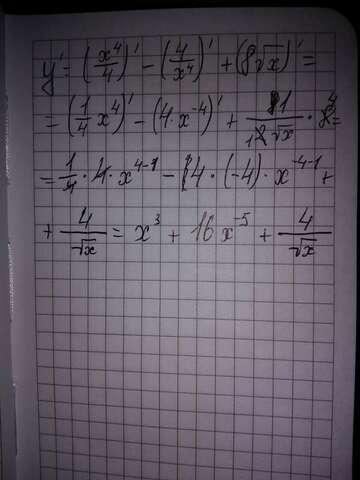 y' = (x⁴/4)' − (4/x⁴)' + (8√x)' =
= (1/4 x⁴)' − (4·x⁻⁴)' + 1/(2√x) · 8 =
= 1/4 · 4 · x⁴⁻¹ − 4 · (−4) · x⁻⁴⁻¹ +
+ 4/√x = x³ + 16x⁻⁵ + 4/√x